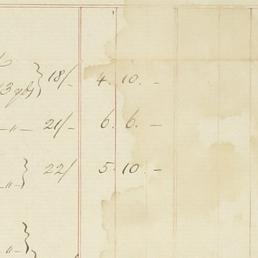 3 yds } 18/- 4. 10. -
-"- 21/- 6. 6. -
-"- } 22/- 5. 10 -
-"- }